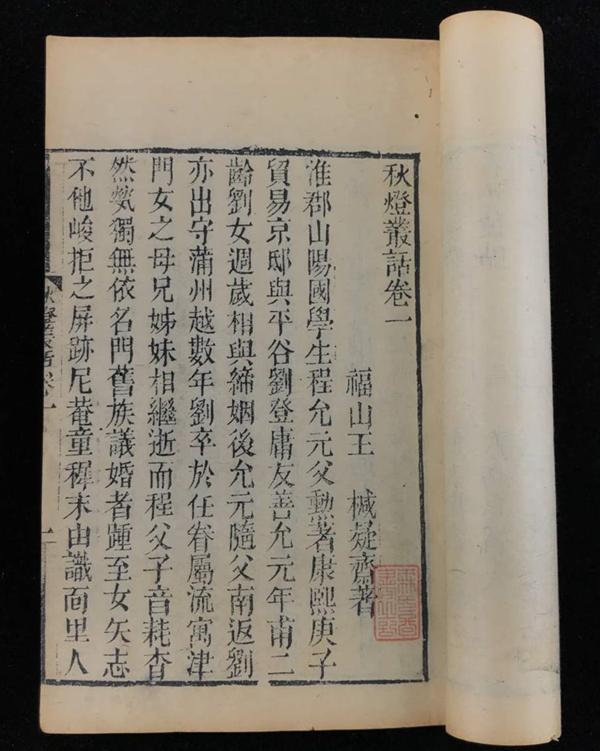 秋燈叢話卷一
福山王 椷凝齋著
淮郡山陽國學生程允元父勲著康熙庚子
貿易京邸與平谷劉登庸友善允元年甫二
齡劉女週歲相與締姻後允元隨父南返劉
亦出守蒲州越數年劉卒於任眷屬流寓津
門女之母兄姊妹相繼逝而程父子音耗杳
然煢獨無依名門舊族議婚者踵至女矢志
不他峻拒之屏跡尼菴童穉末由識靣里人